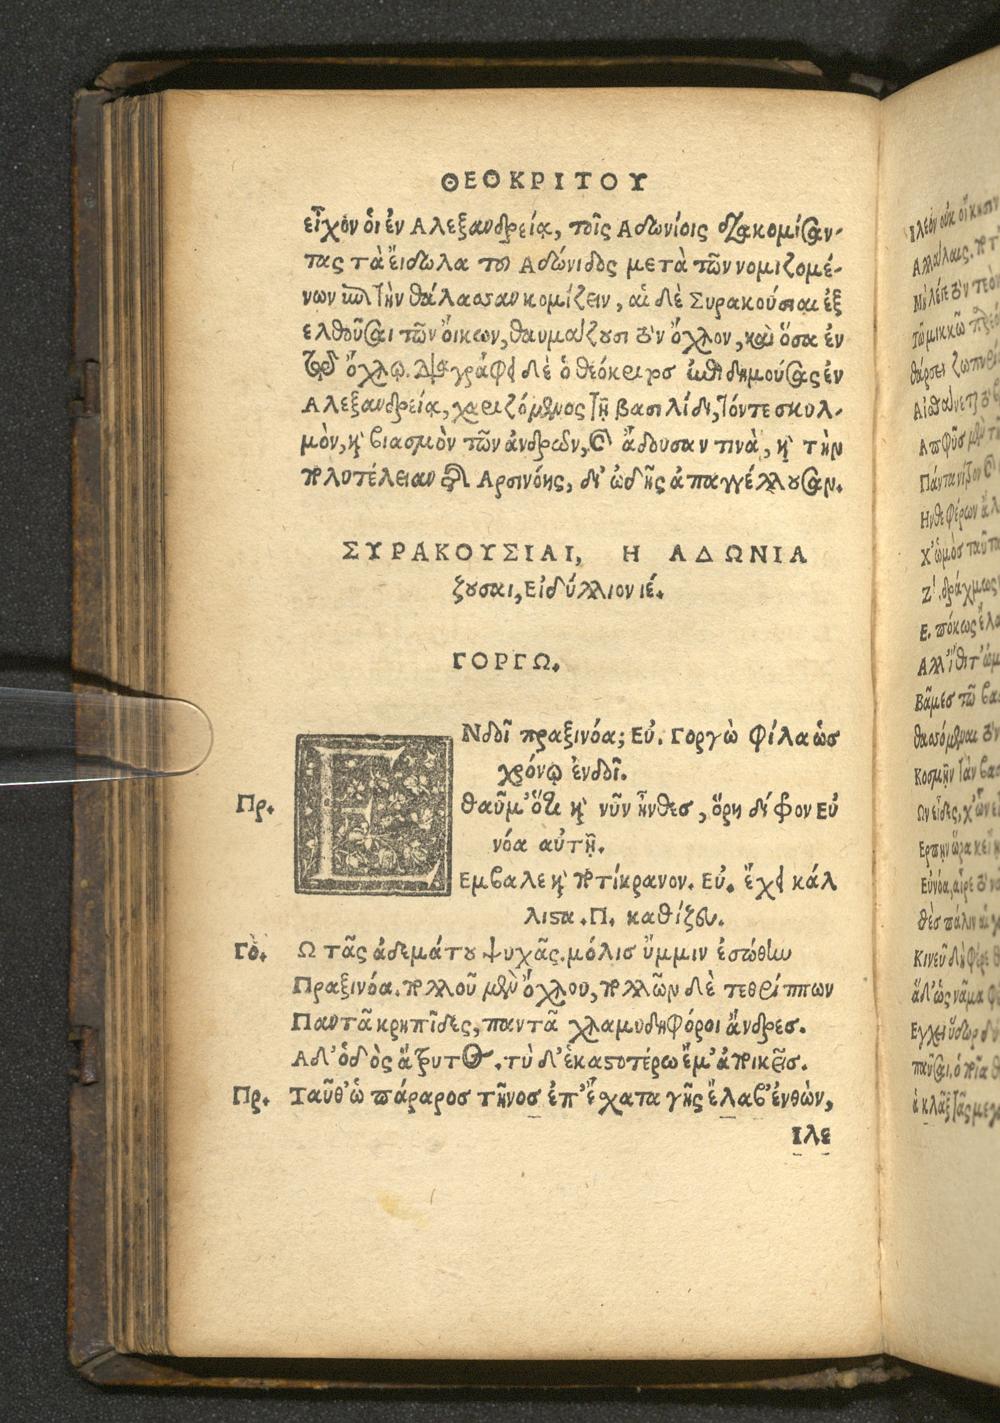 ΘΕΟΚΡΙΤΟΥ
εἶχον οἱ ἐν Αλεξανδρείᾳ, τοῖς Αδωνίοις διακομίσαν-
τας τὰ εἴδωλα τοῦ Αδώνιδος μετὰ τῶν νομιζομέ-
νων ἐπὶ τὴν θάλασσαν κομίζειν, αἱ δὲ Συρακούσιαι ἐξ
ελθοῦσαι τῶν οἴκων, θαυμάζουσι τὸν ὄχλον, καὶ ὅσα ἐν
τῷ ὄχλῳ. Διαγράφει δὲ ὁ θεόκριτος ἐπιδημούσας ἐν
Αλεξανδρείᾳ, χαριζόμενος τῇ βασιλίδι, τόντε σκυλ-
μὸν, καὶ βιασμὸν τῶν ἀνδρῶν, καὶ ἄδουσαν τινὰ, καὶ τὴν
πολυτέλειαν τῆς Αρσινόης, δι' ὠδῆς ἀπαγγέλλουσαν.
ΣΥΡΑΚΟΥΣΙΑΙ, Η ΑΔΩΝΙΑ
ζουσαι, Εἰδύλλιον ιέ.
ΓΟΡΓΩ.
ΕΝδοῖ πραξινόα; Εὐ. Γοργὼ φίλα ὡς
χρόνῳ ἐνδοῖ.
Πρ. θαῦμ' ὅτι καὶ νῦν ἦνθες, ὅρη δίφον Εὐ
νόα αὐτῇ.
Εμβαλε καὶ ποτίκρανον. Εὐ. ἔχει κάλ
λιστα. Π. καθίζευ.
Γο. Ω τᾶς ἀδεμάτου ψυχᾶς. μόλις ὔμμιν ἐσώθην
Πραξινόα. πολλοῦ μὲν ὄχλου, πολλῶν δὲ τεθρίππων
Παντᾶ κρηπῖδες, παντᾶ χλαμυδηφόροι ἄνδρες.
Αδ' ὁδὸς ἄτρυτος. τὺ δ' ἑκαστοτέρω ἔμ' ἀποικεῖς.
Πρ. Ταῦθ' ὡ πάραρος τῆνος ἐπ' ἔσχατα γῆς ἔλαβ' ἐνθὼν,
Ιλε